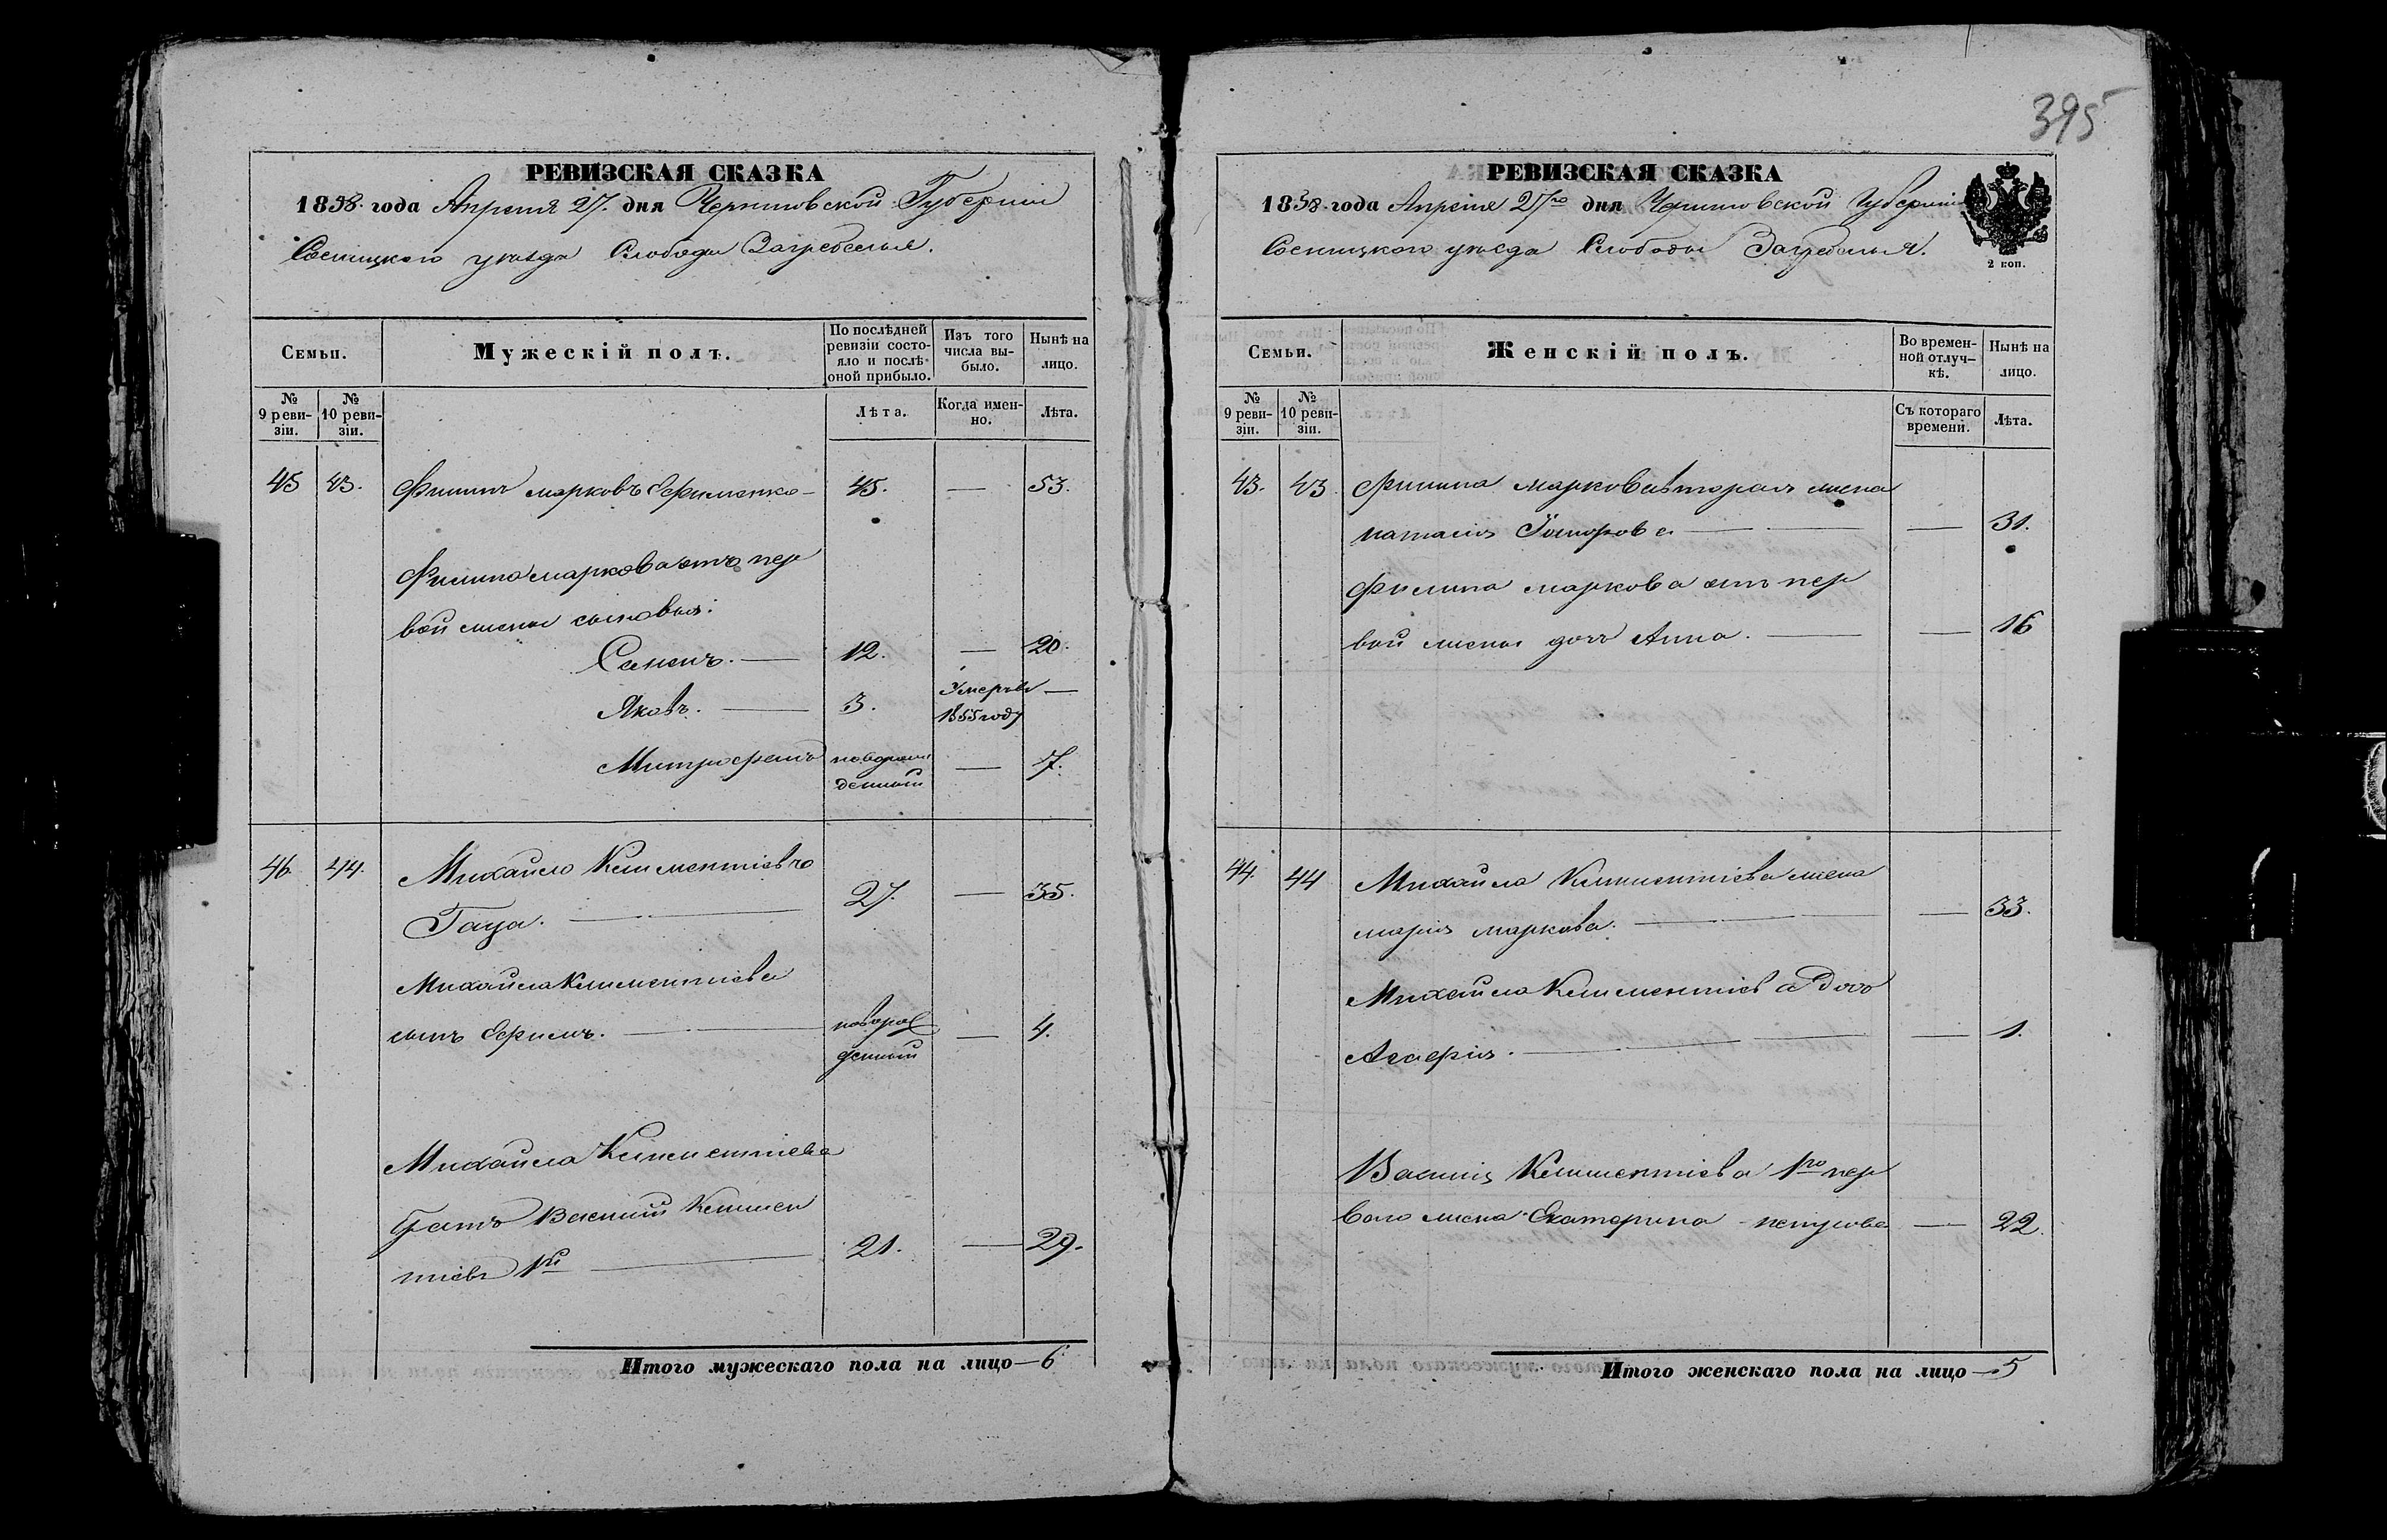 395
РЕВИЗСКАЯ СКАЗКА
1858 года Апреля 27. дня Черниговской Губернии
Сосницкого уезда Слободы Загребелья.
Семьи.
Мужескій полъ.
По послѣдней ревизіи состо-
яло и послѣ
оной прибыло.
Изъ того
числа вы-
было.
Нынѣ на
лицо.
№
9 реви-
зіи.
№
10 реви-
зіи.
Лѣта.
Когда имен-
но.
Лѣта.
45 43. Филипъ Марковъ Ефименко — 45. — 53.
Филипа Маркова отъ пер
вой жены сыновья:
Семенъ. — 12. — 20.
Яковъ. — 3. Умеръ в —
1855 году
Митрофанъ новорож
денный — 7.
46. 44. Михайло Климентіевъ
Гаца. — 27. — 35.
Михайла Климентіева
сынъ Ефимъ. — новорож
денный — 4.
Михайла Климентіева
братъ Василий Климен
тіевъ 1й — 21. — 29.
Итого мужескаго пола на лицо — 6
РЕВИЗСКАЯ СКАЗКА
1858 года Апреля 27го дня Черниговской Губернии
Сосницкого уезда Слободы Загребелья.
2 коп.
Семьи.
Женскій полъ.
Во времен-
ной отлуч-
кѣ.
Нынѣ на
лицо.
№
9 реви-
зіи.
№
10 реви-
зіи.
Съ котораго
времени.
Лѣта.
43. 43 Филипа Маркова вторая жена
Наталія — — 31.
Филипа Маркова отъ пер
вой жены дочь Анна. — — 16
44. 44 Михайла Климентіева жена
Марія Маркова. — — 33.
Михайла Климентіева дочь
Агафія. — — 1.
Василія Климентіева 1го пер
вого жена Екатерина — 22.
Итого женскаго пола на лицо — 5